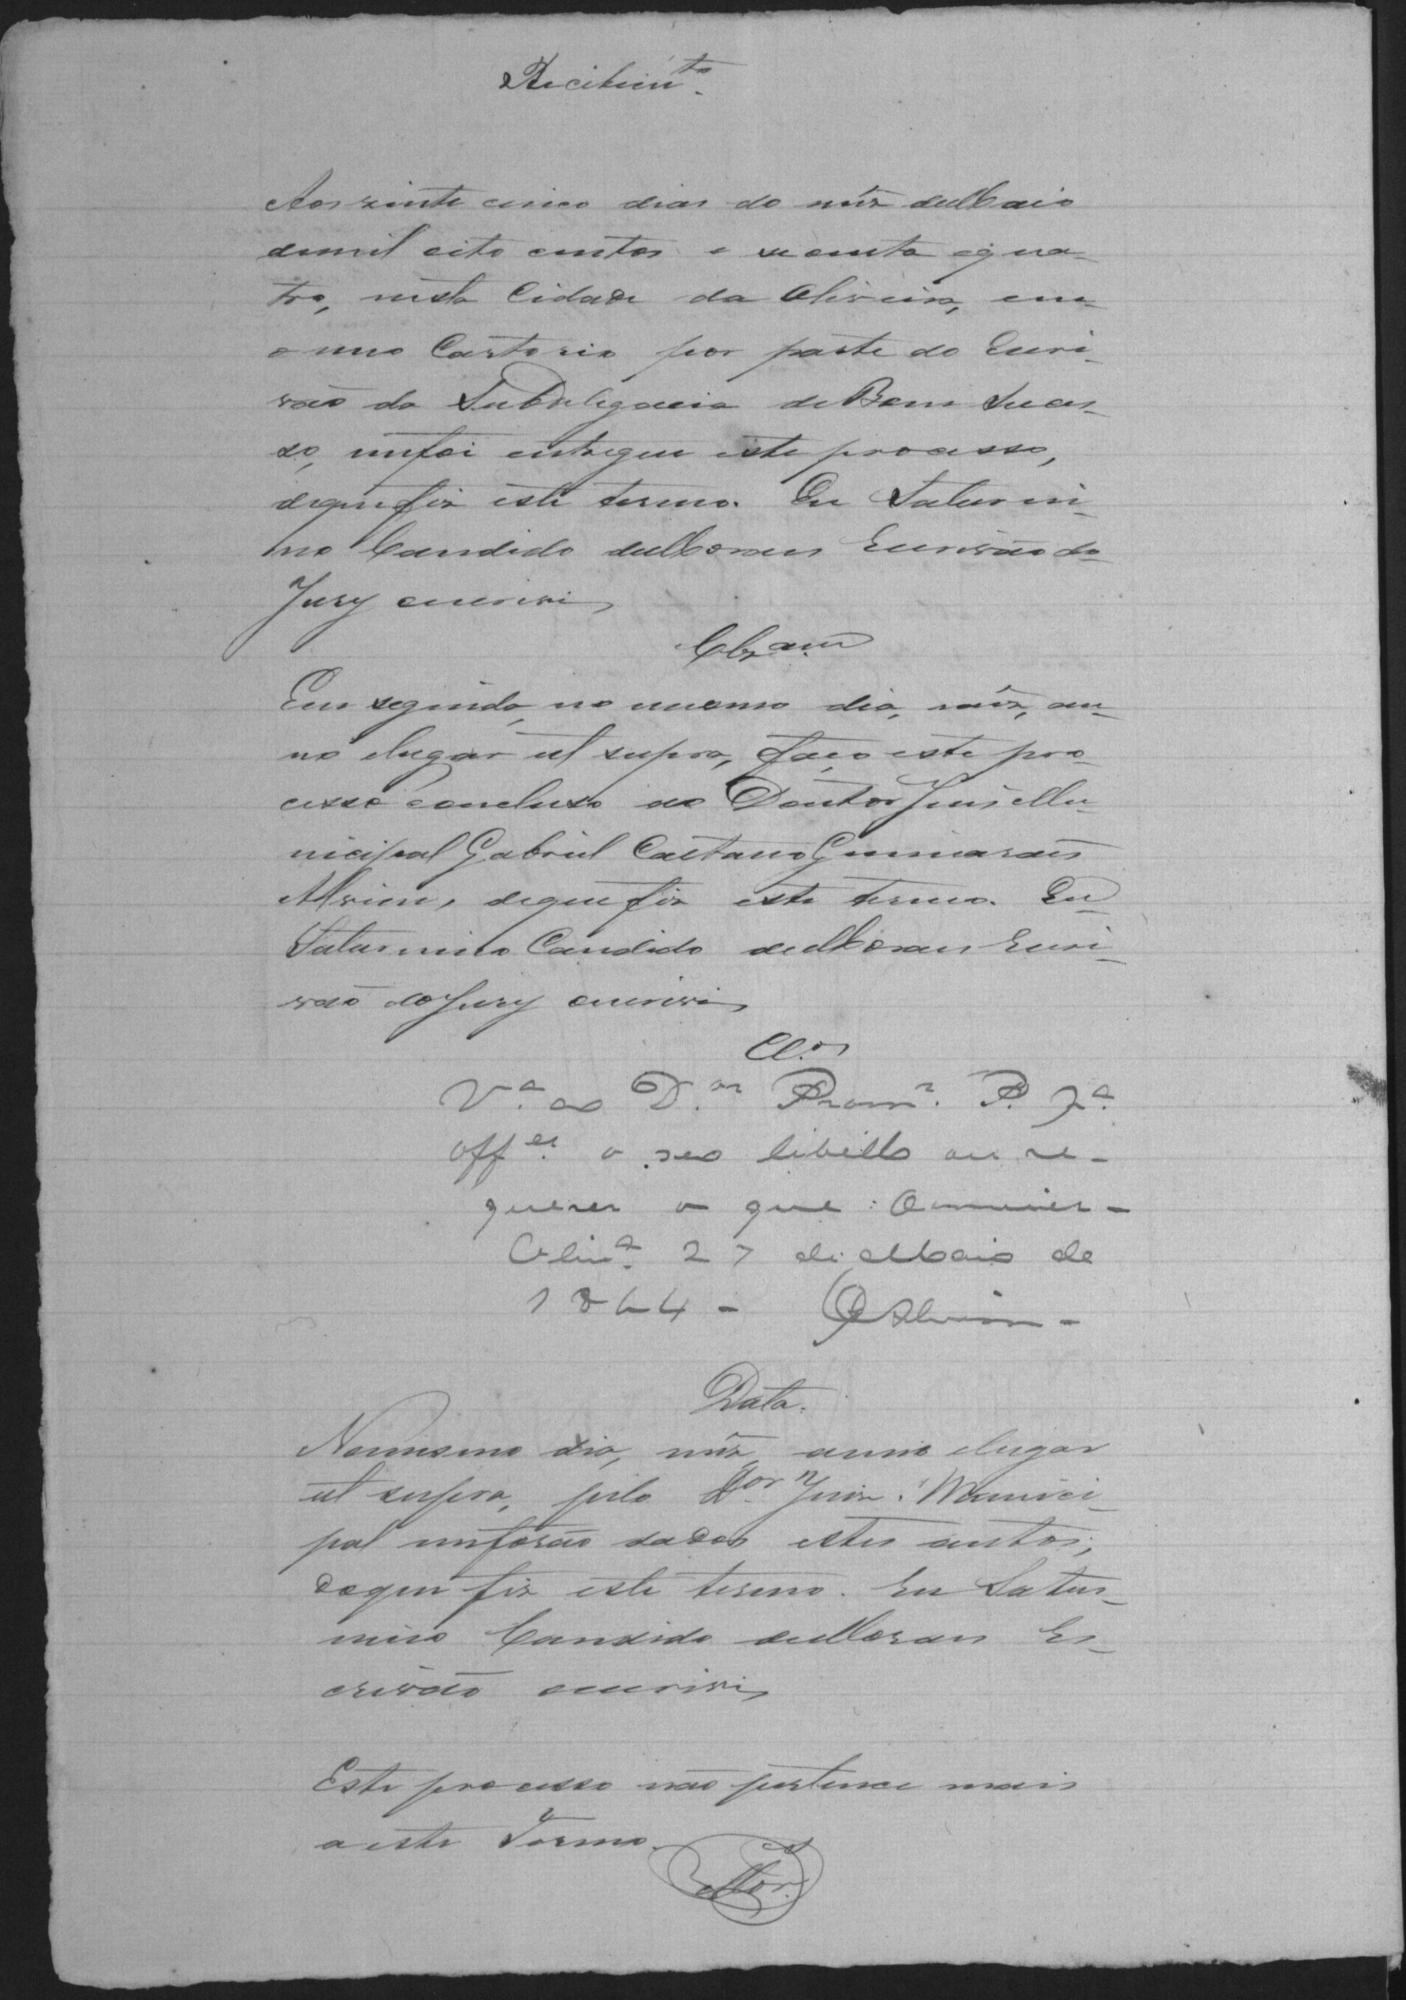 Recebim.to
Aos vinte cinco dias do mêz deMaio
demil oito centos e secenta equa-
tro, nesta Cidade da Oliveira, em
o meo Cartorio por parte do Escri-
vão da Subdelegacia de Bom Suces-
so, mefoi entregue este processo,
dequefiz este termo. Eu Saturni-
no Candido deMoraes Escrivão do
Jury oescrevi
Clzam
Em seguida, no mesmo dia, mêz, an-
no elugar ut supra, faço este pro-
cesso concluso ao Doutor Juis Mu-
nicipal Gabriel Caetano Guimaraes
Alvim, dequefiz este termo. Eu
Saturnino Candido deMoraes Escri-
vão doJury oescrevi
Cl.os
V.a ao D.or Prom.r P. p.a
off.er o seo libello ou re-
querer o que convier-
Oliv.a 27 de Maio de
1864 - Alvim -
Data.
Nomesmo dia, mêz, anno elugar
ut supra, pelo D.or Juiz Munici-
pal meforão dados estes autos,
doque fiz este termo. Eu Satur-
nino Candido deMoraes Es-
crivão oescrevi
Este processo não pertence mais
a este Termo.
Mor.